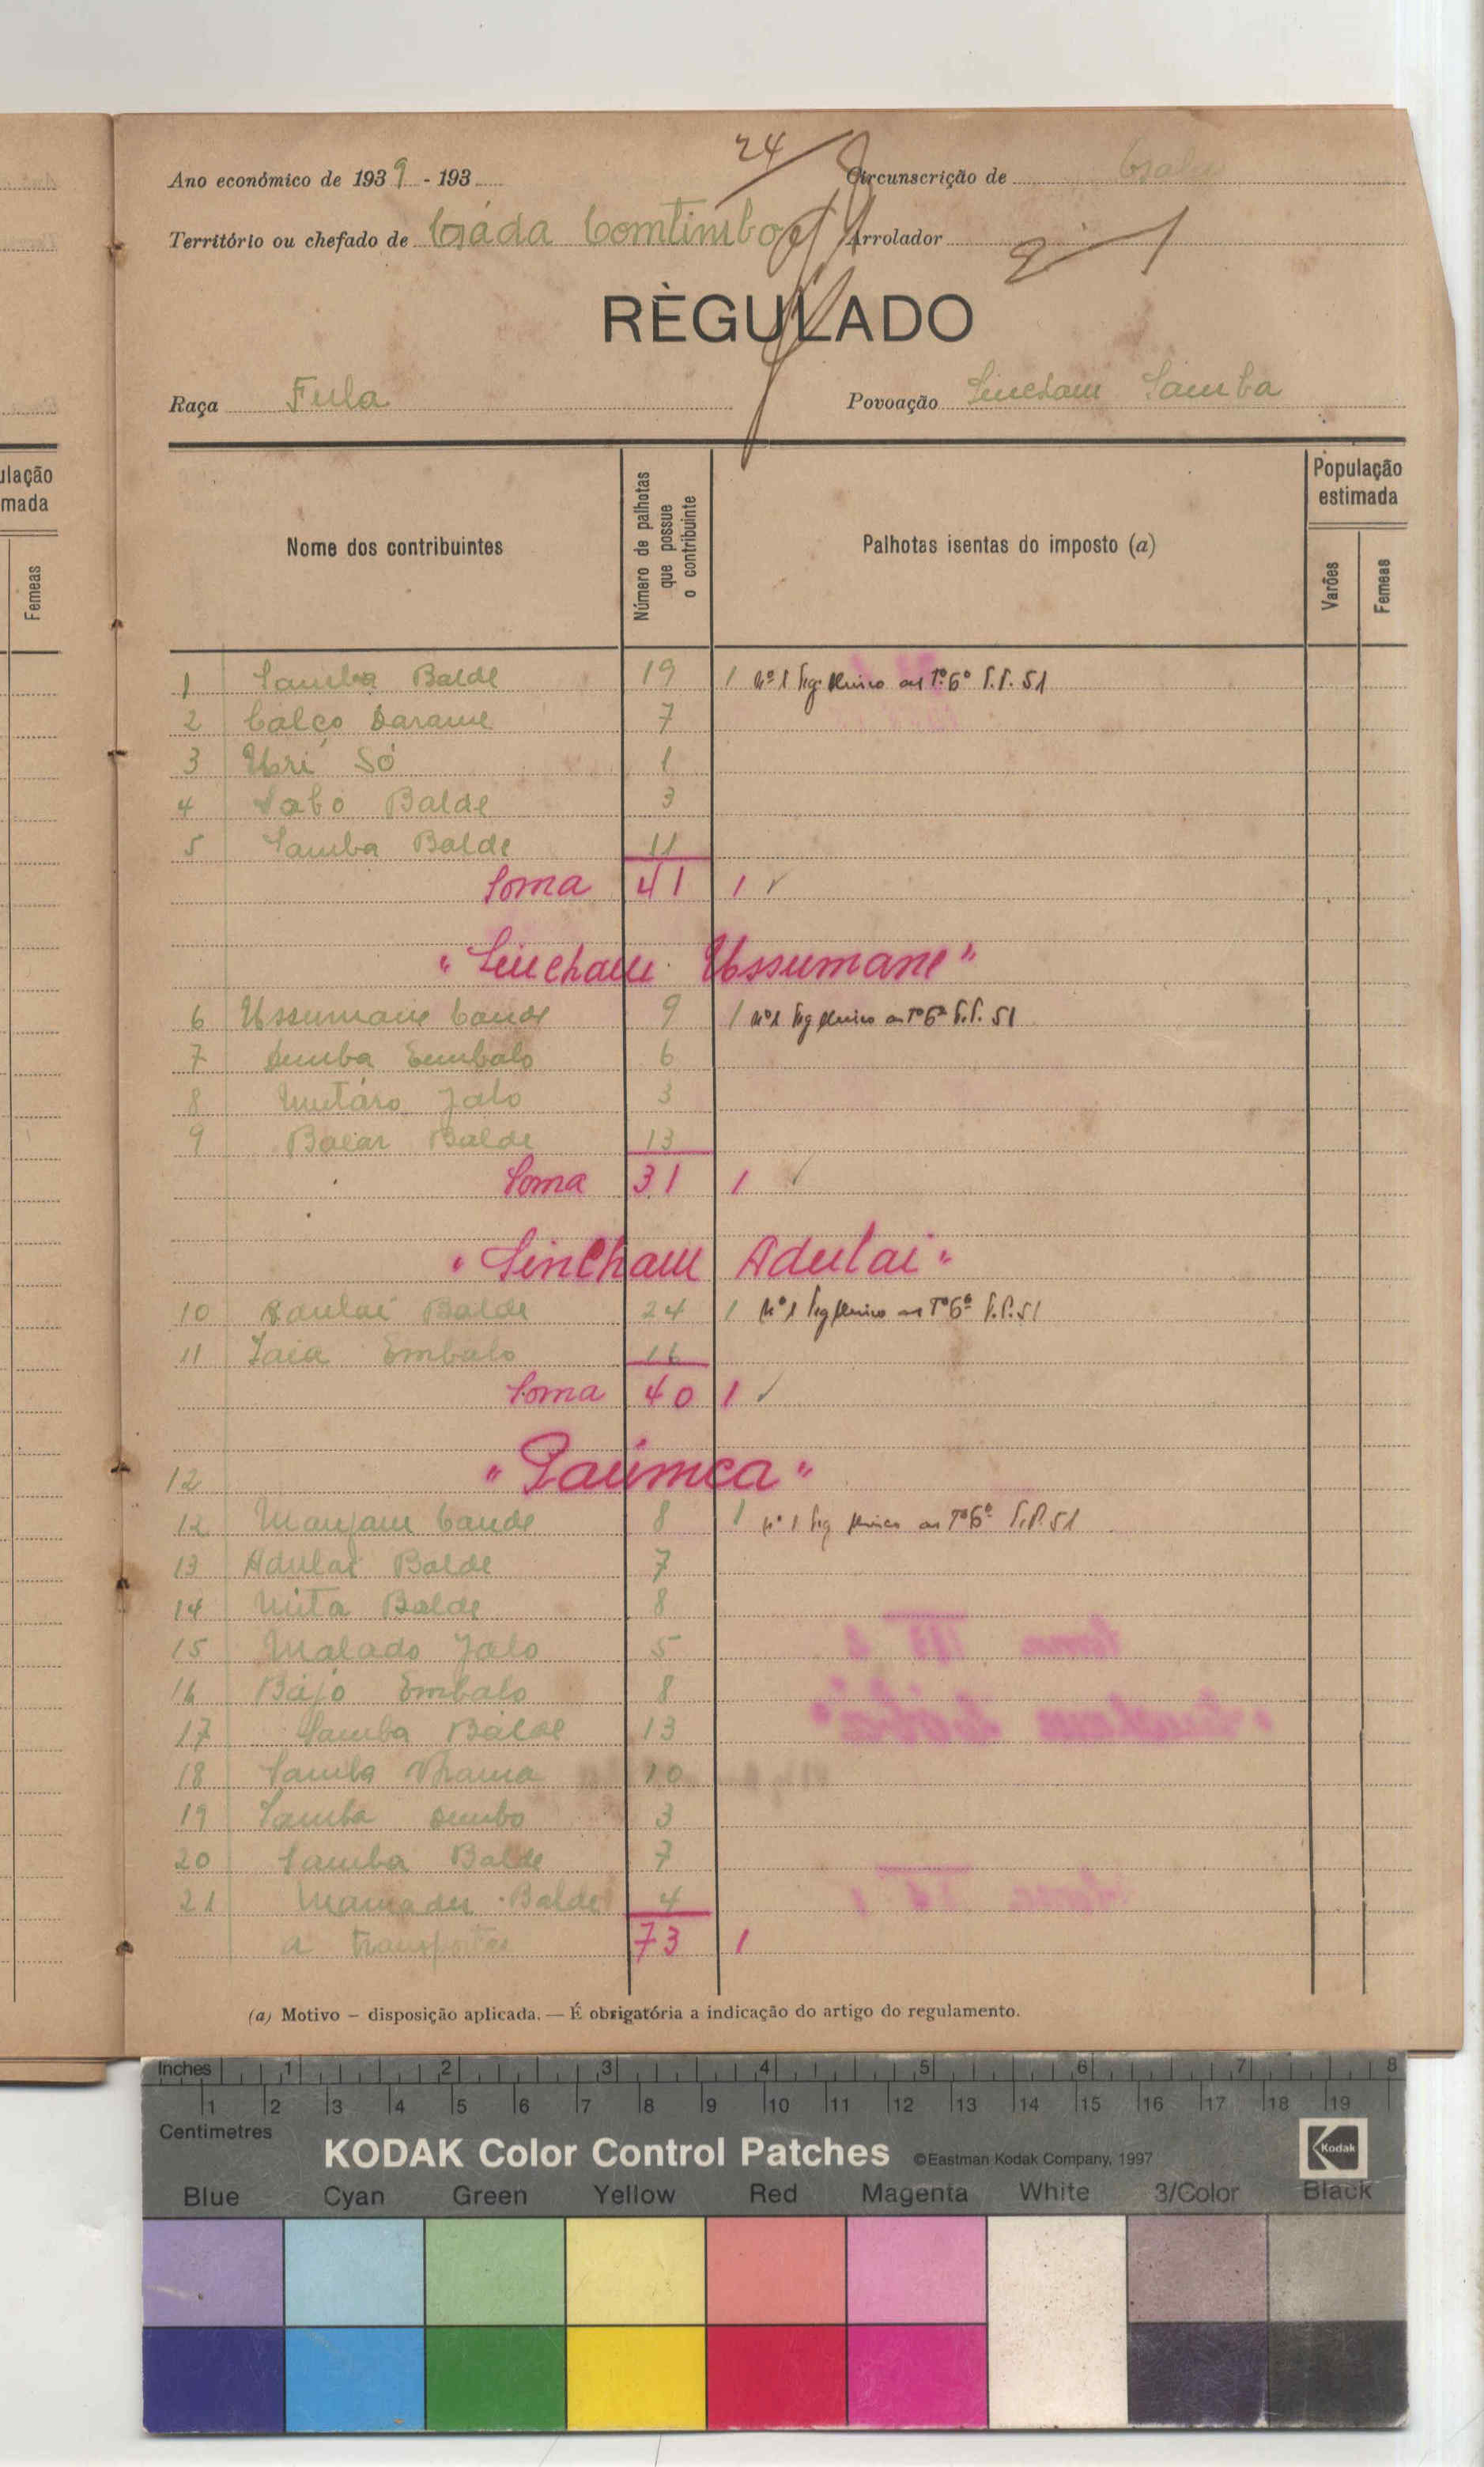 24
Ano económico de 1939 - 193
Circunscrição de Gabu
Território ou chefado de Gáda Comtimbo
Arrolador
RÈGULADO
Raça Fula
Povoação Sincham Samba
ulação
mada
Femeas
Nome dos contribuintes
Número de palhotas que possue o contribuinte
Palhotas isentas do imposto (a)
População estimada
Varões
Femeas
1 Samba Balde 19 1 Nº 1 51
2 Calco Darame 7
3 Só 1
4 Sabo Balde 3
5 Samba Balde 11
Soma 41 1
"Sincham Ussumane"
6 Ussumane Cande 9 1 nº1 51
7 Demba Embalo 6
8 Mutáro Jalo 3
9 Balde 13
Soma 31 1
"Sincham Adulai"
10 Adulai Balde 24 1 Nº 1 51
11 Embalo 16
Soma 40 1
12 "Paúmca"
12 Manjam Cande 8 1 nº 1 51
13 Adulai Balde 7
14 Mita Balde 8
15 Malado Jalo 5
16 Bájo Embalo 8
17 Samba Balde 13
18 Samba 10
19 Samba Dembo 3
20 Samba Balde 7
21 Mamadu Balde 4
a transportar 73 1
(a) Motivo — disposição aplicada. — É obrigatória a indicação do artigo do regulamento.
Inches 1 2 3 4 5 6 7 8
1 2 3 4 5 6 7 8 9 10 11 12 13 14 15 16 17 18 19
Centimetres
KODAK Color Control Patches ©Eastman Kodak Company, 1997 Kodak
Blue Cyan Green Yellow Red Magenta White 3/Color Black